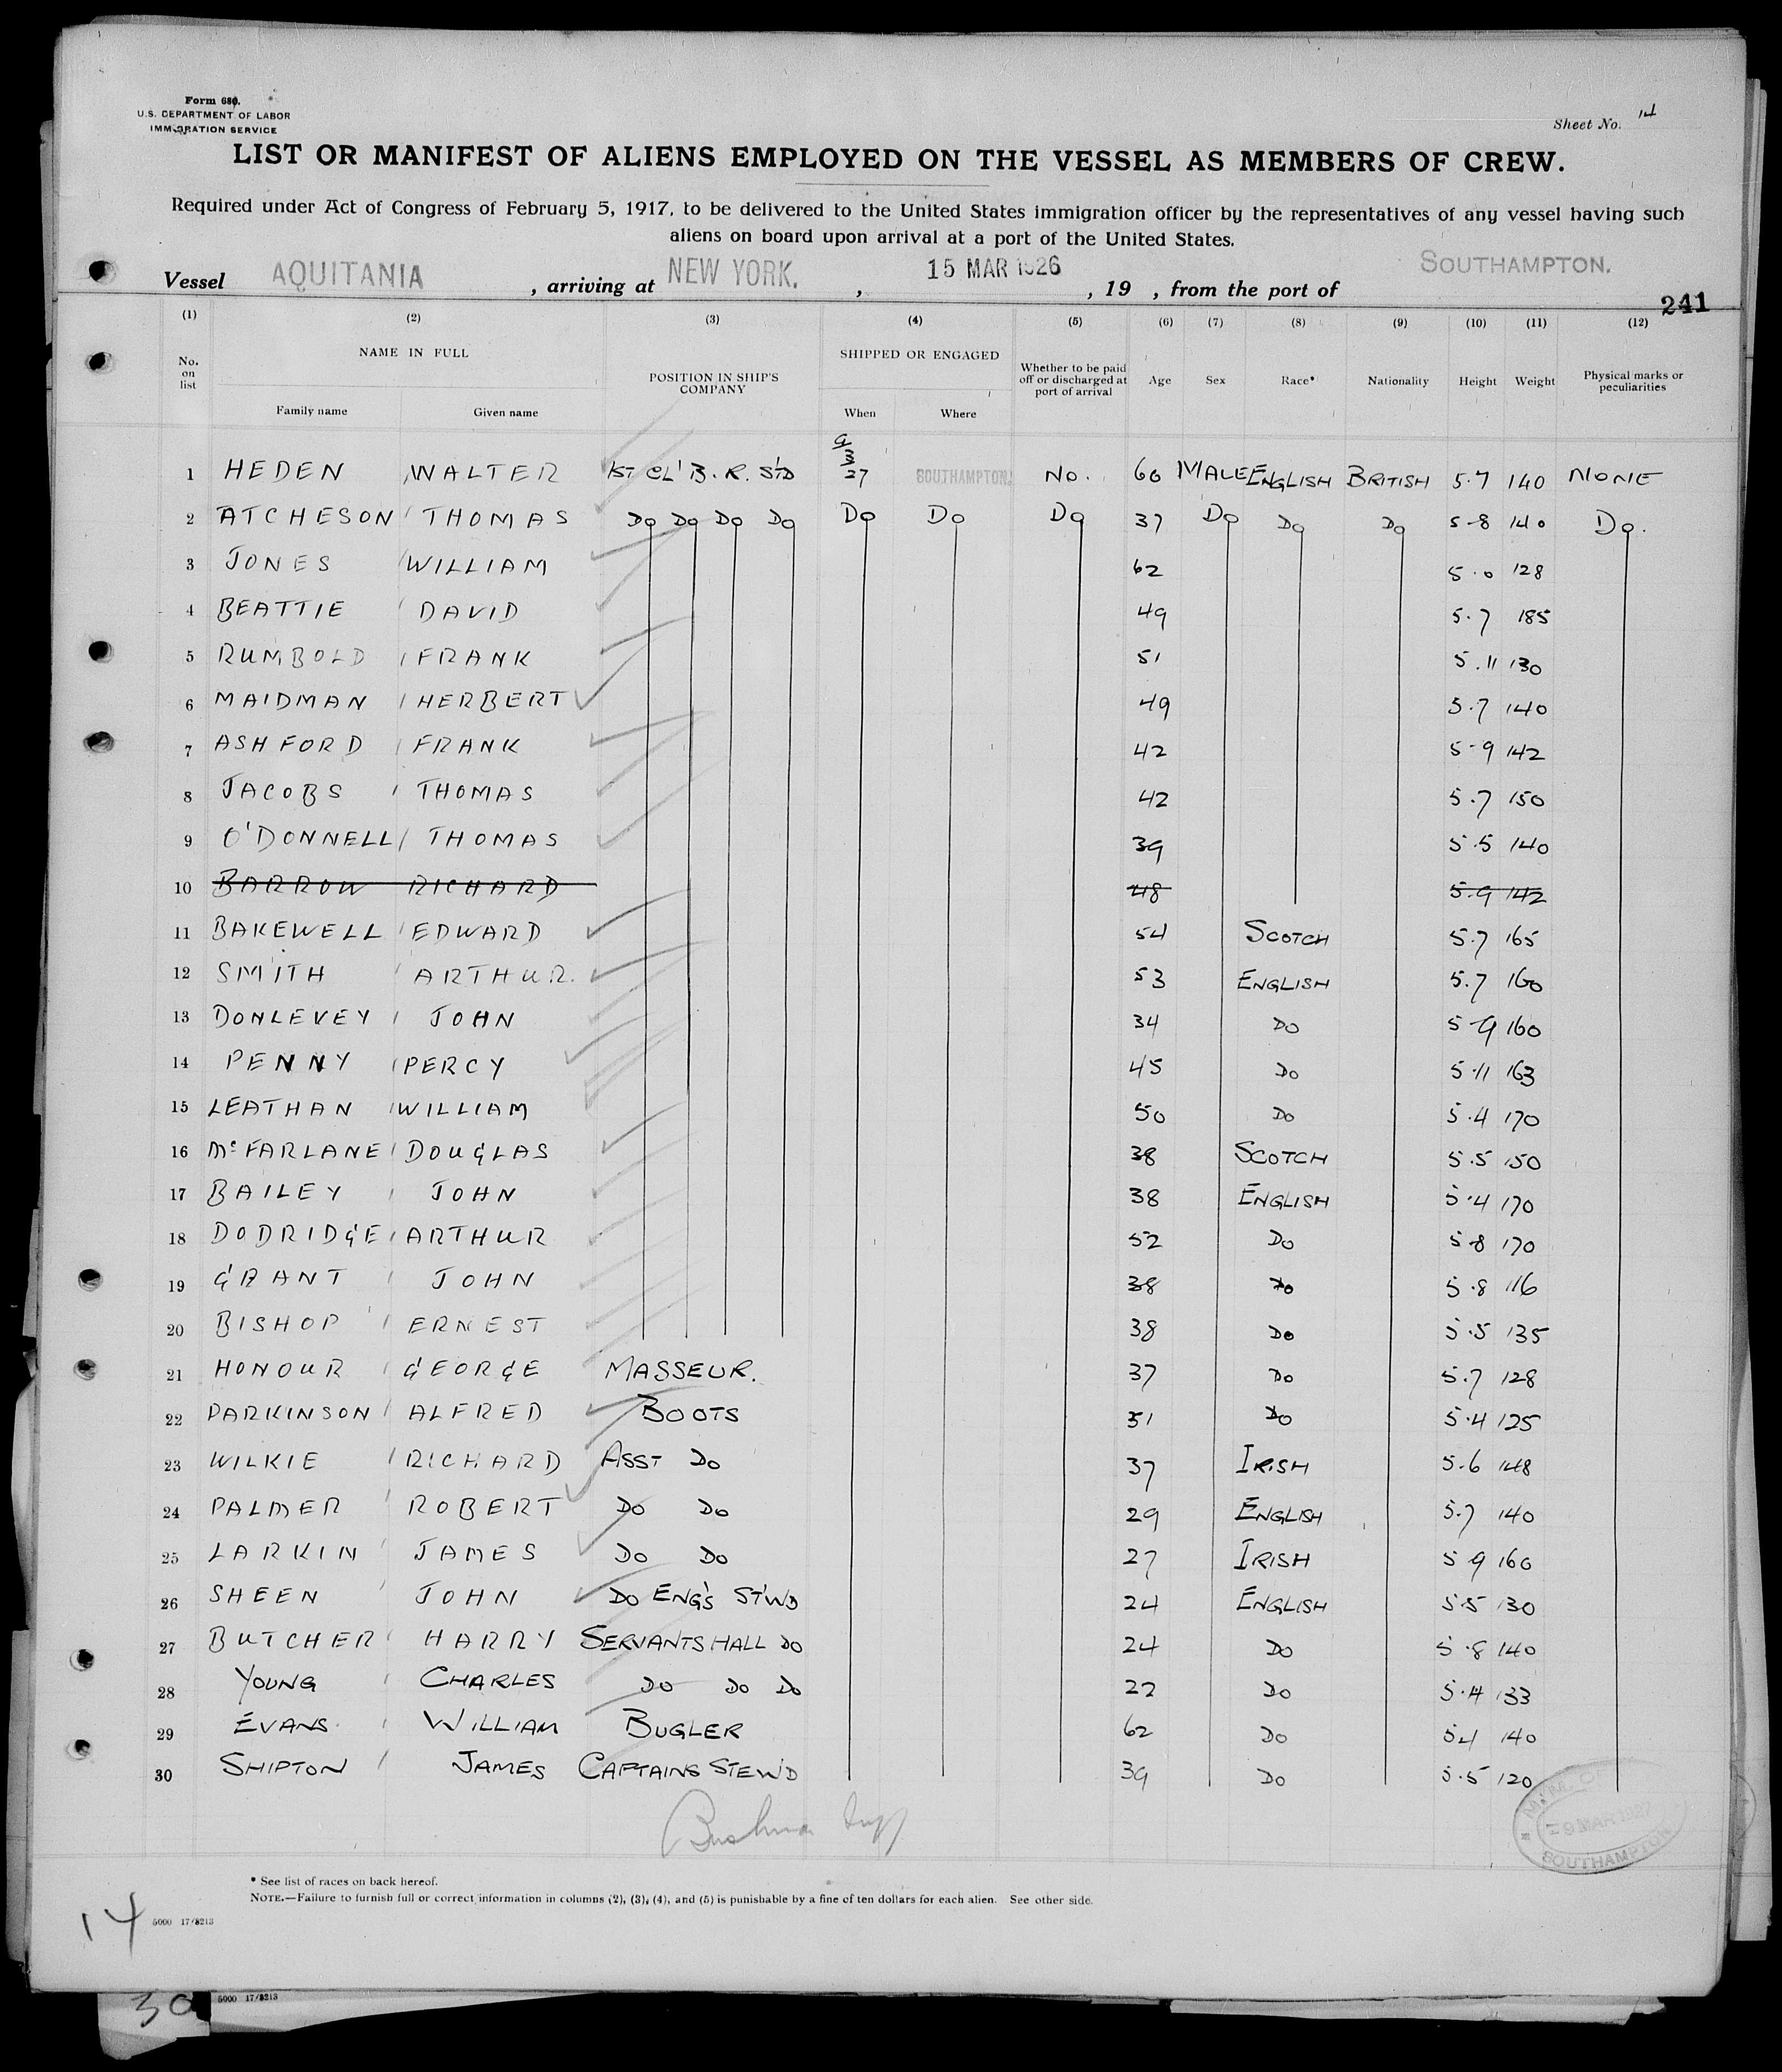 Form 680.
U.S. DEPARTMENT OF LABOR
IMMIGRATION SERVICE
Sheet No. 14
LIST OR MANIFEST OF ALIENS EMPLOYED ON THE VESSEL AS MEMBERS OF CREW.
Required under Act of Congress of February 5, 1917, to be delivered to the United States immigration officer by the representatives of any vessel having such
aliens on board upon arrival at a port of the United States.
Vessel AQUITANIA, arriving at NEW YORK., 15 MAR 1926, 19 , from the port of SOUTHAMPTON.
241
(1) (2) (3) (4) (5) (6) (7) (8) (9) (10) (11) (12)
No. on list NAME IN FULL Family name Given name POSITION IN SHIP'S COMPANY SHIPPED OR ENGAGED When Where Whether to be paid off or discharged at port of arrival Age Sex Race* Nationality Height Weight Physical marks or peculiarities
1 HEDEN WALTER 1ST CL' B. R. STD 9/3/27 SOUTHAMPTON. NO. 60 MALE ENGLISH BRITISH 5.7 140 NONE
2 ATCHESON THOMAS DO DO DO DO DO DO DO 37 DO DO DO 5-8 140 DO.
3 JONES WILLIAM 62 5.0 128
4 BEATTIE DAVID 49 5.7 185
5 RUMBOLD FRANK 51 5.11 130
6 MAIDMAN HERBERT 49 5.7 140
7 ASHFORD FRANK 42 5-9 142
8 JACOBS THOMAS 42 5.7 150
9 O'DONNELL THOMAS 39 5.5 140
10 BARROW RICHARD 48 5.9 142
11 BAKEWELL EDWARD 54 SCOTCH 5.7 165
12 SMITH ARTHUR. 53 ENGLISH 5.7 160
13 DONLEVEY JOHN 34 DO 5-9 160
14 PENNY PERCY 45 DO 5.11 163
15 LEATHAN WILLIAM 50 DO 5.4 170
16 McFARLANE DOUGLAS 38 SCOTCH 5.5 150
17 BAILEY JOHN 38 ENGLISH 5.4 170
18 DODRIDGE ARTHUR 52 DO 5-8 170
19 GRANT JOHN 38 DO 5.8 116
20 BISHOP ERNEST 38 DO 5.5 135
21 HONOUR GEORGE MASSEUR. 37 DO 5.7 128
22 PARKINSON ALFRED BOOTS 51 DO 5.4 125
23 WILKIE RICHARD ASST DO 37 IRISH 5.6 148
24 PALMER ROBERT DO DO 29 ENGLISH 5.7 140
25 LARKIN JAMES DO DO 27 IRISH 5 9 160
26 SHEEN JOHN DO ENG'S ST'WD 24 ENGLISH 5.5 130
27 BUTCHER HARRY SERVANTS HALL DO 24 DO 5.8 140
28 YOUNG CHARLES DO DO DO 22 DO 5.4 133
29 EVANS. WILLIAM BUGLER 62 DO 5.4 140
30 SHIPTON JAMES CAPTAINS STEW'D 39 DO 5.5 120
9 MAR 1927
SOUTHAMPTON
* See list of races on back hereof.
NOTE.—Failure to furnish full or correct information in columns (2), (3), (4), and (5) is punishable by a fine of ten dollars for each alien. See other side.
14 5000 17/8213
30 5000 17/8213